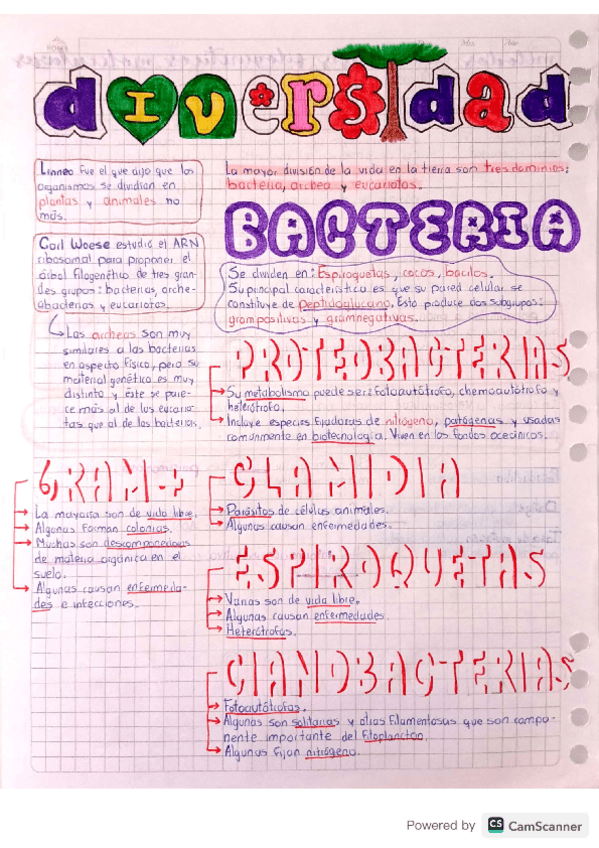 diversidad
Linneo fue el que dijo que los
organismos se dividian en
plantas y animales no
más.
La mayor división de la vida en la tierra son tres dominios:
bacteria, archea y eucariotas.
BACTERIA
Carl Woese estudió el ARN
ribosomal para proponer el
árbol filogenético de tres gran-
des grupos: bacterias, arche-
abacterias y eucariotas.
Se dividen en: Espiroquetas, cocos, bacilos.
Su principal característica es que su pared celular se
constituye de Peptidoglucano. Esto produce dos subgrupos:
grampositivas y gramnegativas.
Las archeas son muy
similares a las bacterias
en aspecto físico, pero su
material genético es muy
distinto y éste se pare-
ce más al de los eucario-
tas que al de las bacterias.
PROTEOBACTERIAS
Su metabolismo puede ser: fotoautótrofo, chemoautótrofo y
heterótrofo.
Incluye especies fijadoras de nitrógeno, patógenas y usadas
comúnmente en biotecnología. Viven en los fondos oceánicos.
GRAM +
La mayoría son de vida libre.
Algunas forman colonias.
Muchas son descomponedoras
de materia orgánica en el
suelo.
Algunas causan enfermeda-
des e infecciones.
CLAMIDIA
Parásitos de células animales.
Algunas causan enfermedades.
ESPIROQUETAS
Varias son de vida libre.
Algunas causan enfermedades.
Heterótrofas.
CIANOBACTERIAS
Fotoautótrofas.
Algunas son solitarias y otras filamentosas que son compo-
nente importante del fitoplancton.
Algunas fijan nitrógeno.
Powered by CS CamScanner